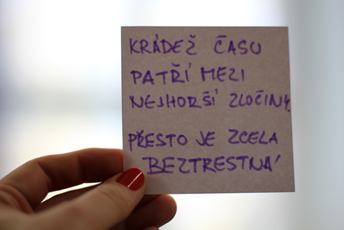 KRÁDEŽ ČASU
PATŘÍ MEZI
NEJHORŠÍ ZLOČINY
PŘESTO JE ZCELA
BEZTRESTNÁ